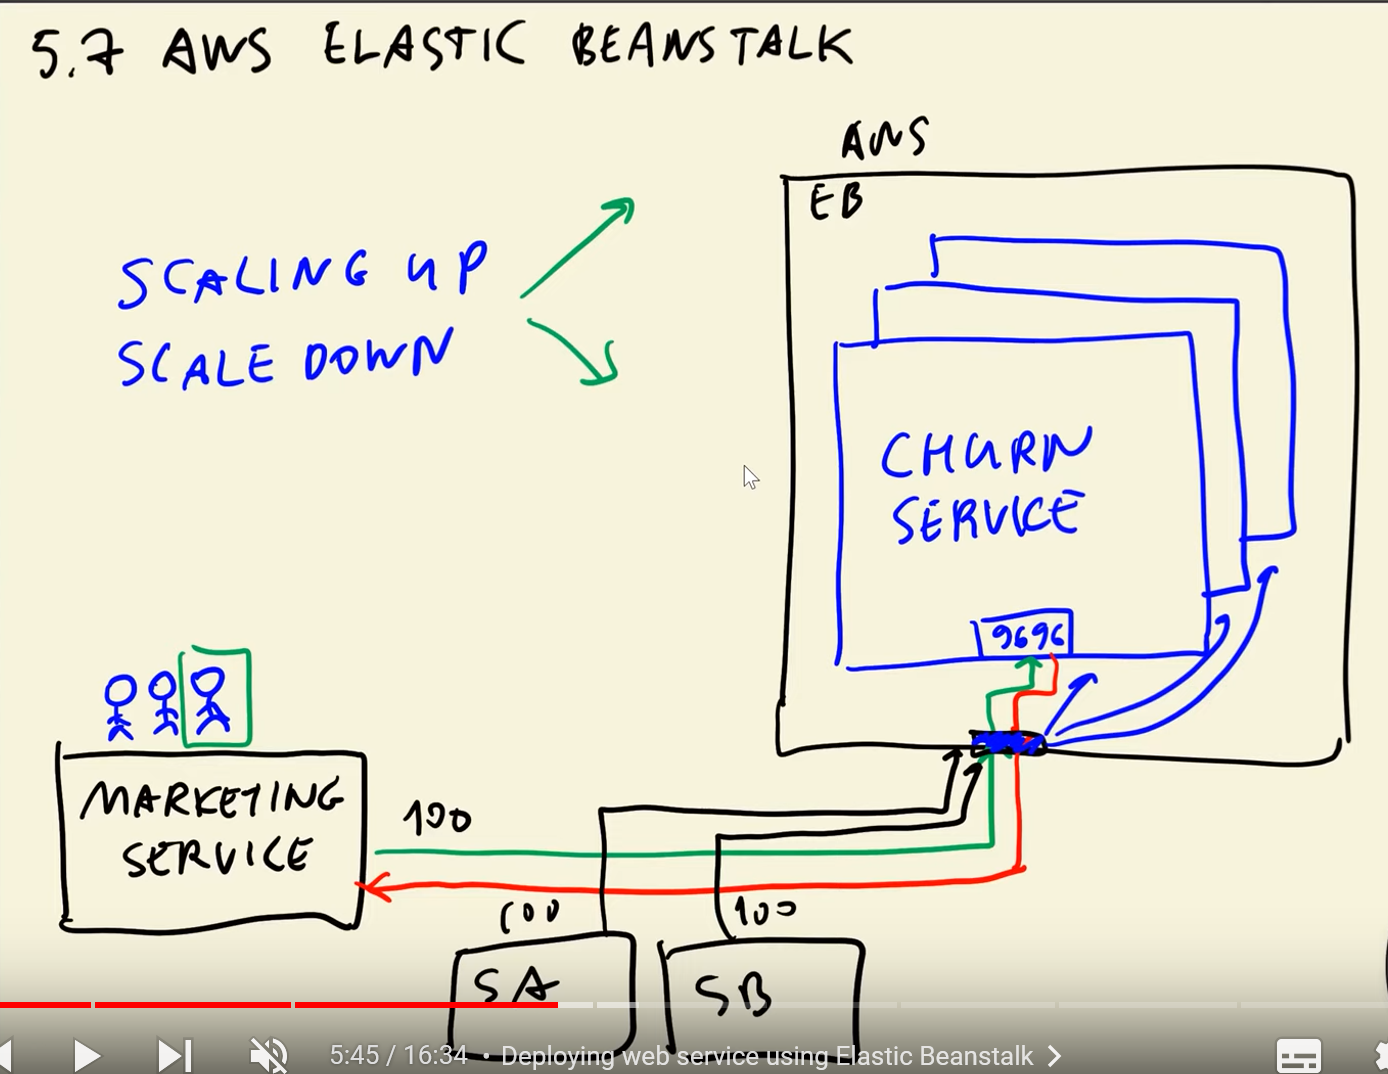 5.7 AWS ELASTIC BEANSTALK
AWS
EB
SCALING UP
SCALE DOWN
CHURN
SERVICE
9696
MARKETING
SERVICE
100
100
100
SA
SB
5:45 / 16:34 • Deploying web service using Elastic Beanstalk